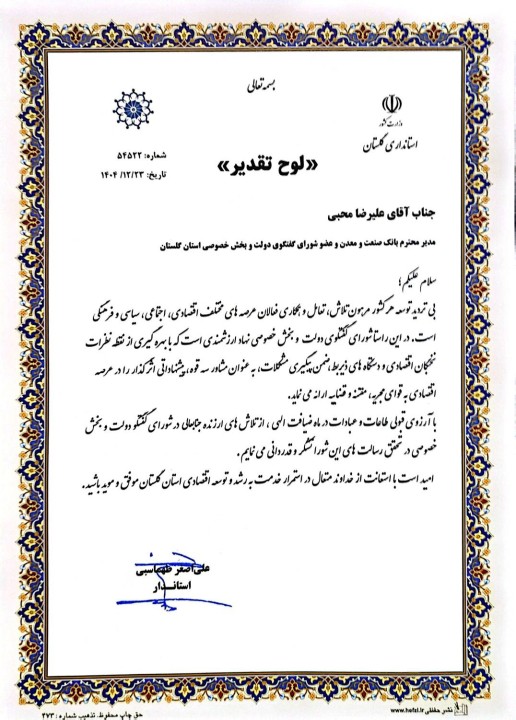 بسمه تعالی
وزارت کشور
استانداری گلستان
شماره: ۵۴۵۲۲
تاریخ: ۱۴۰۴/۱۲/۲۳
«لوح تقدیر»
جناب آقای علیرضا محبی
مدیر محترم بانک صنعت و معدن و عضو شورای گفتگوی دولت و بخش خصوصی استان گلستان
سلام علیکم؛
بی تردید توسعه هر کشور مرهون تلاش، تعامل و همکاری فعالان عرصه های مختلف اقتصادی، اجتماعی، سیاسی و فرهنگی
است. در این راستا شورای گفتگوی دولت و بخش خصوصی نهاد ارزشمندی است که با بهره گیری از نقطه نظرات
نخبگان اقتصادی و دستگاه های ذیربط، ضمن پیگیری مشکلات، به عنوان مشاور سه قوه، پیشنهاداتی اثر گذار را در عرصه
اقتصادی به قوای مجریه، مقننه و قضاییه ارائه می نماید.
با آرزوی قبولی طاعات و عبادات در ماه ضیافت الهی، از تلاش های ارزنده جنابعالی در شورای گفتگو دولت و بخش
خصوصی در تحقق رسالت های این شورا تشکر و قدردانی می نمایم.
امید است با استعانت از خداوند متعال در استمرار خدمت به رشد و توسعه اقتصادی استان گلستان موفق و موید باشید.
علی‌اصغر طهماسبی
استاندار
نشر حفظی www.hefzi.ir
حق چاپ محفوظ. تذهیب شماره: ۴۷۳